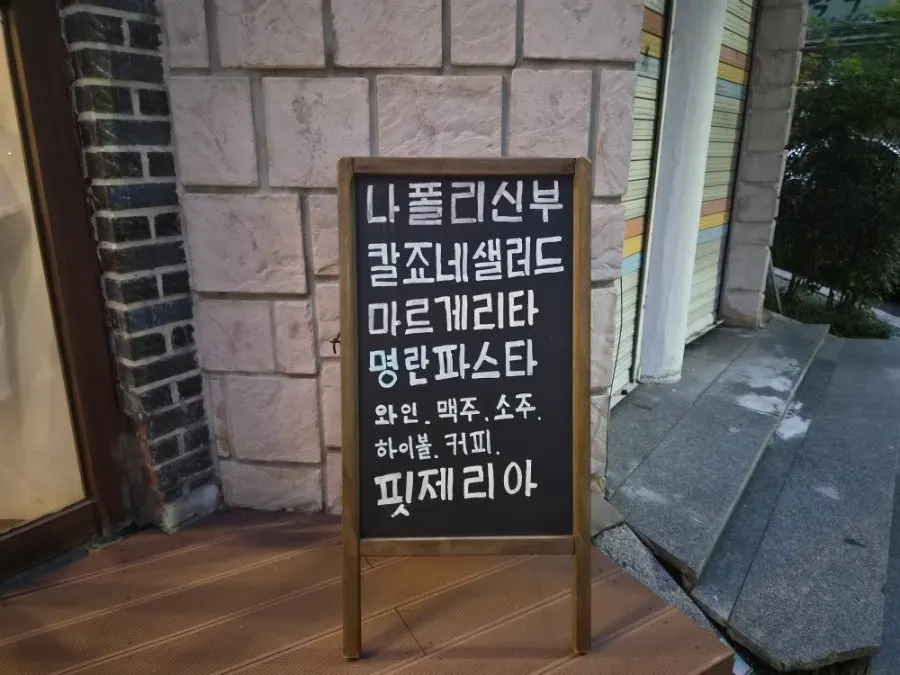 나폴리신부
칼죠네샐러드
마르게리타
명란파스타
와인. 맥주. 소주.
하이볼. 커피.
핏제리아